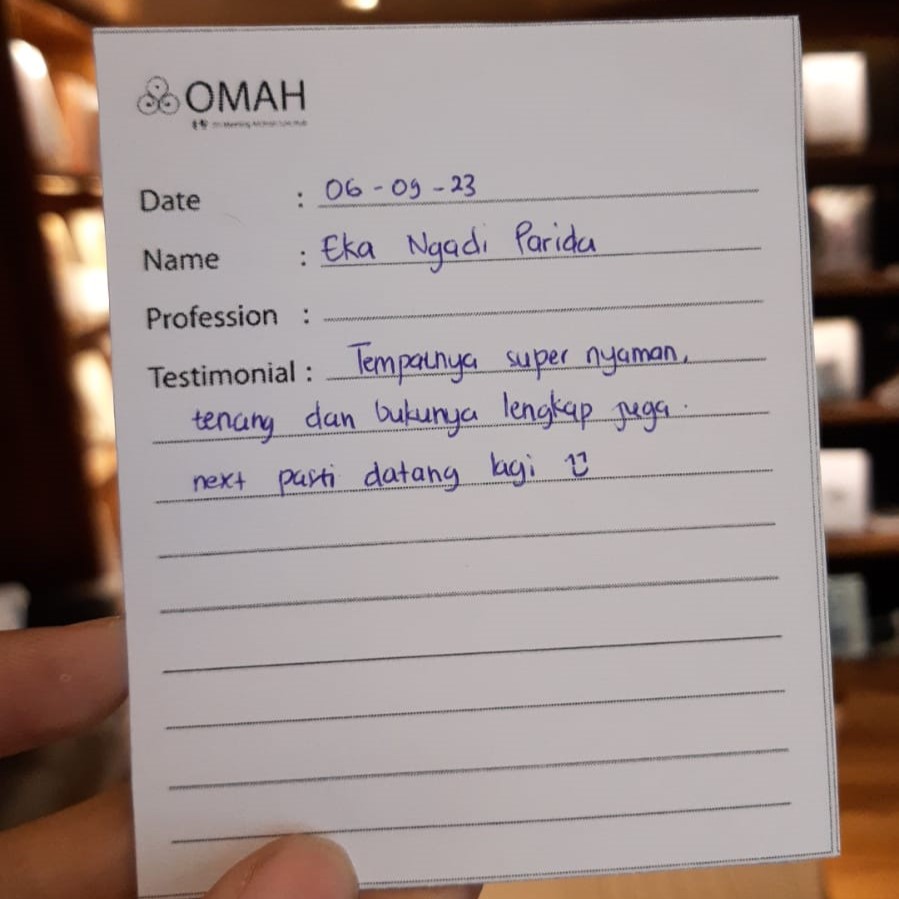 OMAH
Date : 06-09-23
Name : Eka Ngadi Parida
Profession :
Testimonial : Tempatnya super nyaman,
tenang dan bukunya lengkap juga.
next pasti datang lagi